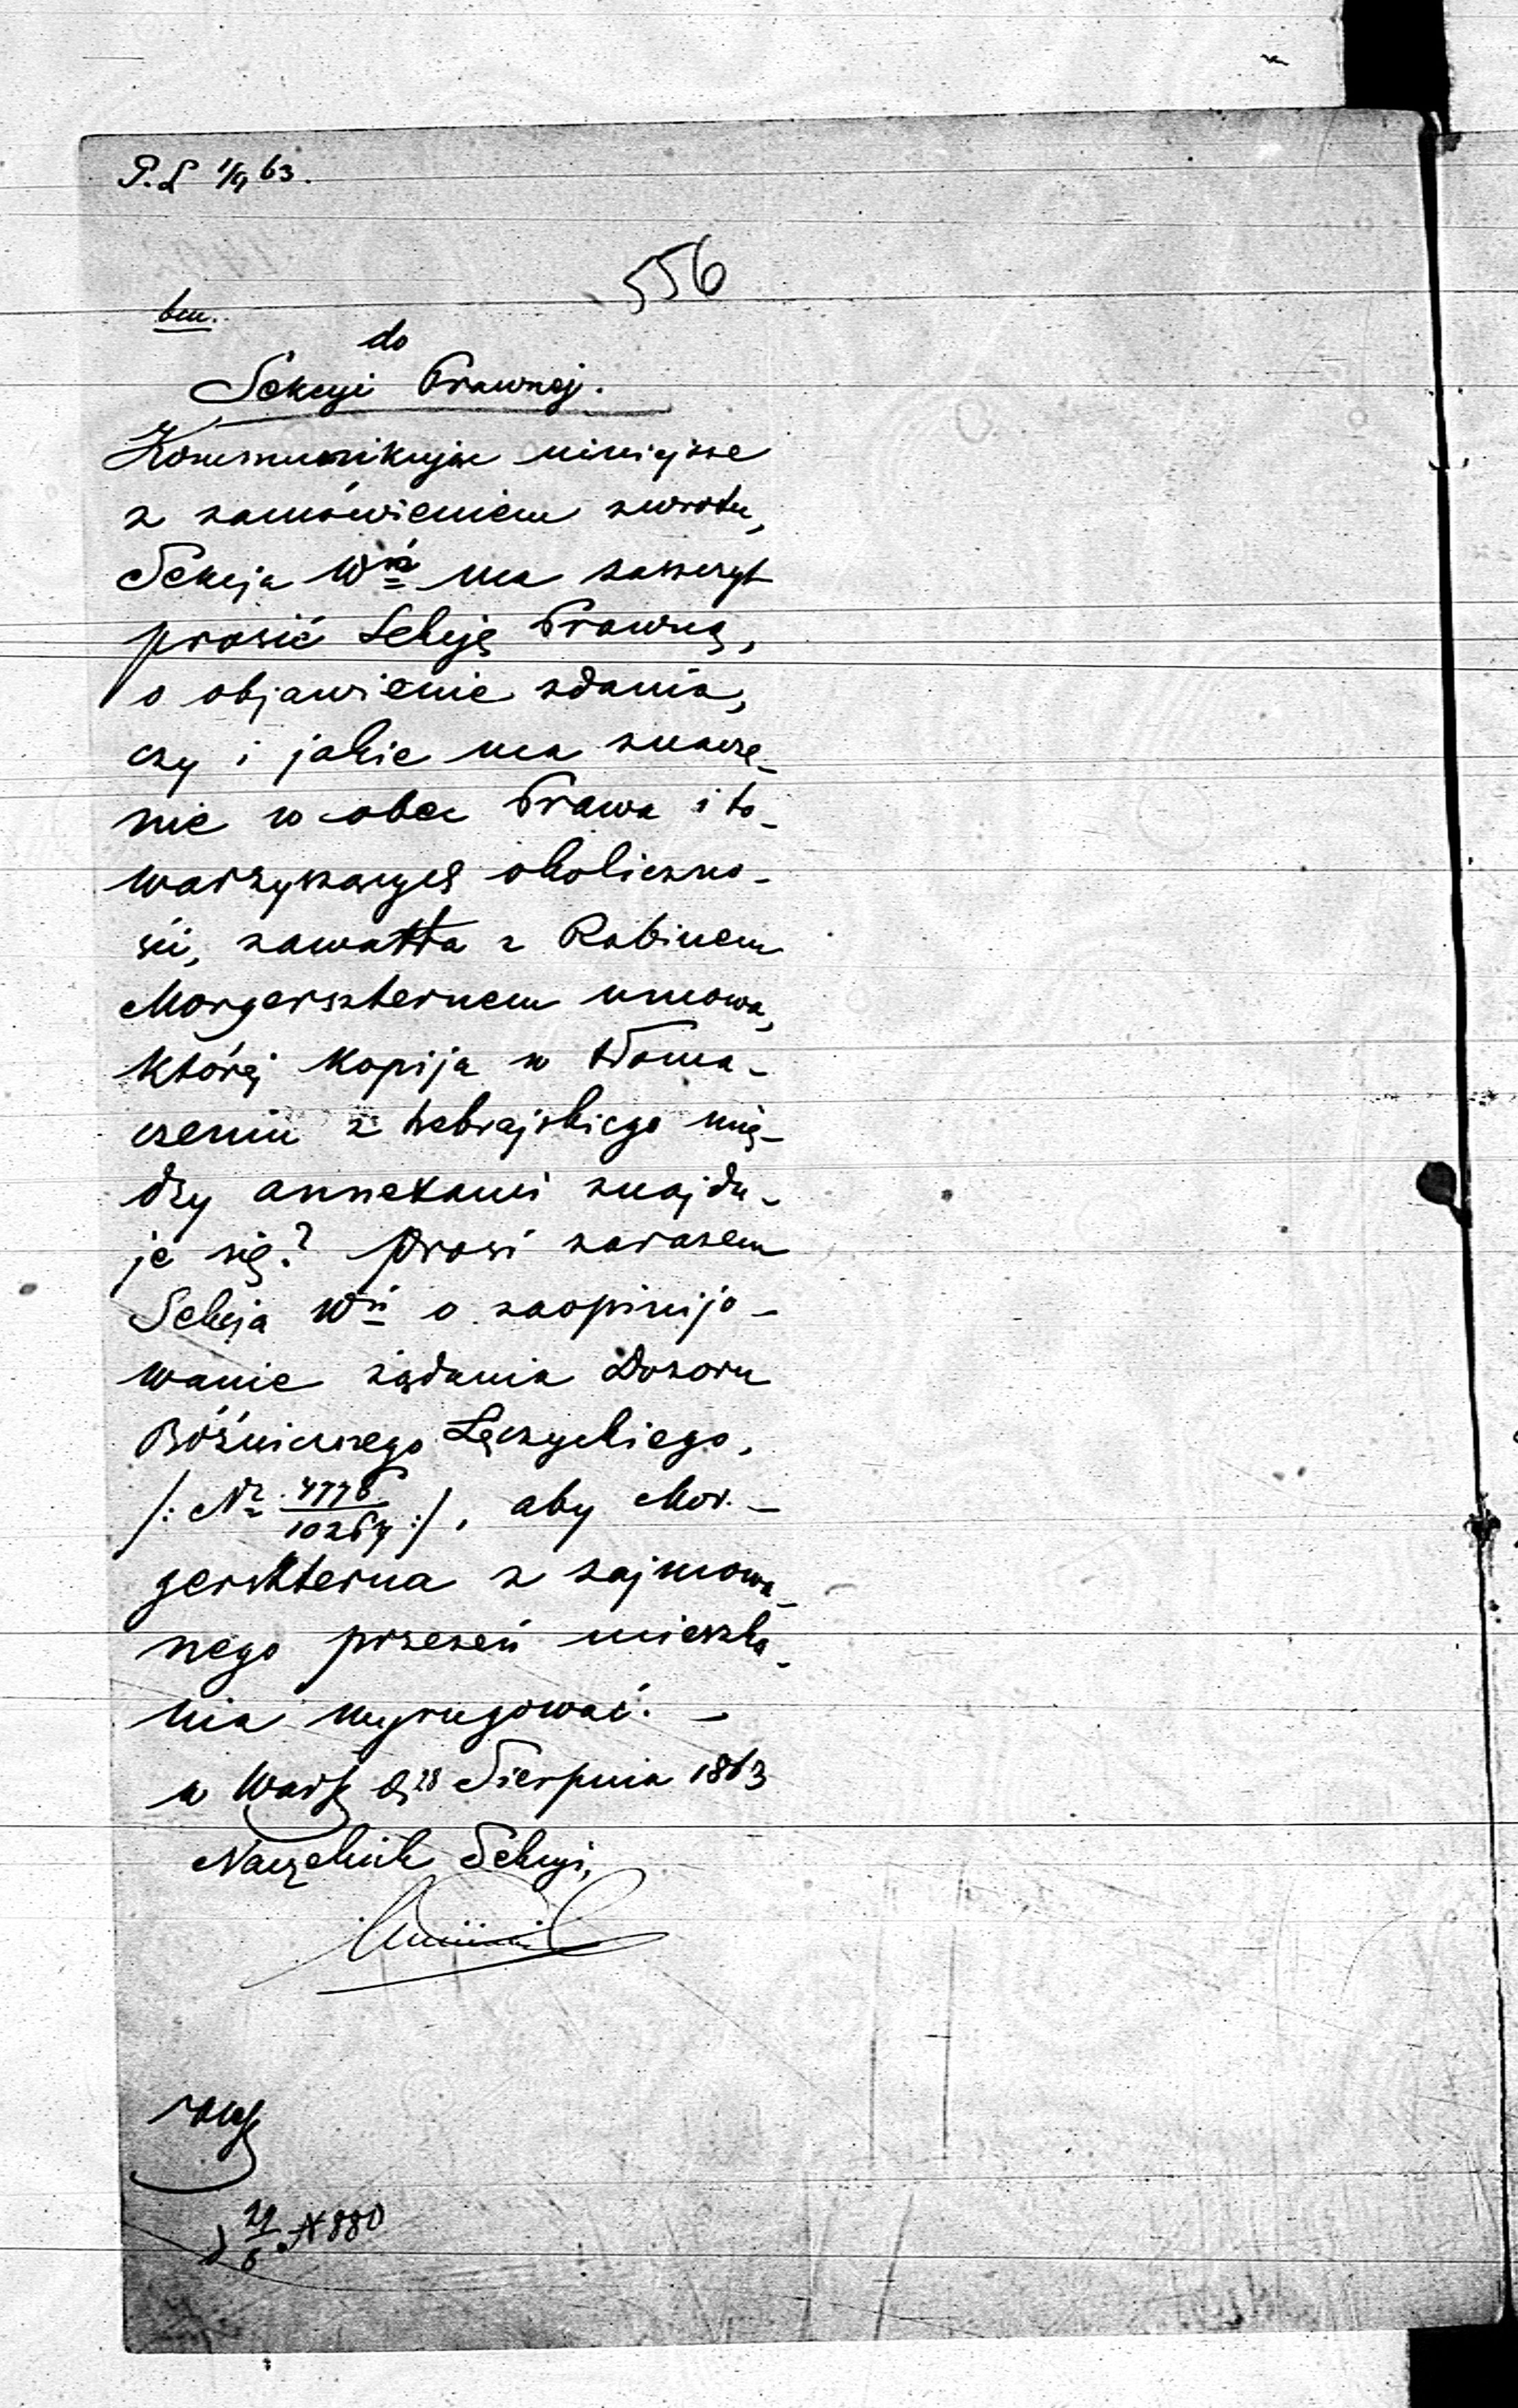 P.S 1/9 63.
556
bm.
do
Sekcyi Prawnej.
Kommunikując niniejsze
z zamówieniem zwrotu,
Sekcja Wń ma zaszczyt
prosić Sekcję Prawną,
o objawienie zdania,
czy i jakie ma znacze-
nie w obec Prawa i to-
warzyszących okoliczno-
ści, zawarta z Rabinem
Morgerszternem umowa,
której kopija w tłoma-
czeniu z hebrajskiego mię-
dzy annexami znajdu-
je się? Prosi zarazem
Sekcja Wń o zaopinijo-
wanie żądania Dozoru
Bóżniczego Łęczyckiego,
/: Nr 4778/10264 :/, aby Mor-
gerszterna z zajmowa-
nego przezeń mieszka-
nia wyrugować. -
w Warsz d 28 Sierpnia 1863
Naczelnik Sekcyi,
d 29/8 N 880